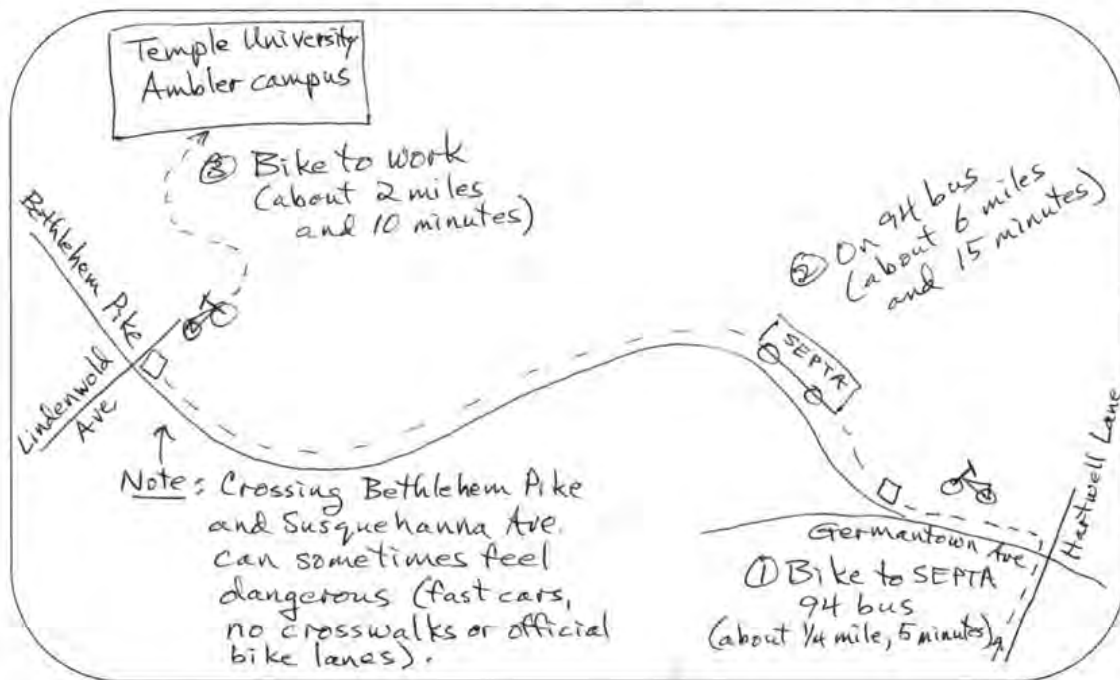 Temple University
Ambler campus
③ Bike to work
(about 2 miles
and 10 minutes)
Bethlehem Pike
Lindenwold
Ave
② On 94 bus
(about 6 miles
and 15 minutes)
SEPTA
Hartwell Lane
Germantown Ave
① Bike to SEPTA
94 bus
(about 1/4 mile, 5 minutes)
Note: Crossing Bethlehem Pike
and Susquehanna Ave.
can sometimes feel
dangerous (fast cars,
no crosswalks or official
bike lanes).